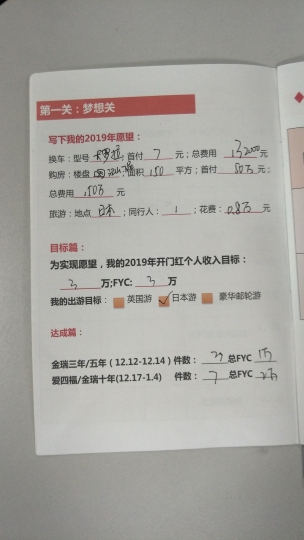 第一关：梦想关
写下我的2019年愿望：
换车：型号 卡罗拉；首付 7 元；总费用 132000 元
购房：楼盘；面积 150 平方；首付 50万 元；
总费用 150万 元
旅游：地点 日本；同行人： 1 ；花费： 0.8万 元
目标篇：
为实现愿望，我的2019年开门红个人收入目标：
3 万;FYC: 3 万
我的出游目标： 英国游 日本游 豪华邮轮游
达成篇：
金瑞三年/五年（12.12-12.14）件数： 总FYC 1万
爱四福/金瑞十年(12.17-1.4) 件数： 7 总FYC 2万